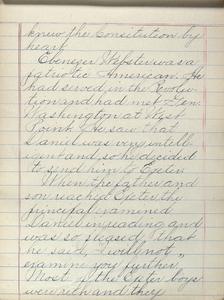 knew the Consitution by
heart.
Ebenezer Webster was a
patriotic American. He
had served in the Revolu-
tion and had met Gen.
Washington at West
Point. He saw that
Daniel was very intelli-
gent and so he decided
to send him to Exeter.
When the father and
son reached Exeter the
principal examined
Daniel in reading and
was so pleased that
he said, "I will not
examine you further."
Most of the Exeter boys
were rich and they